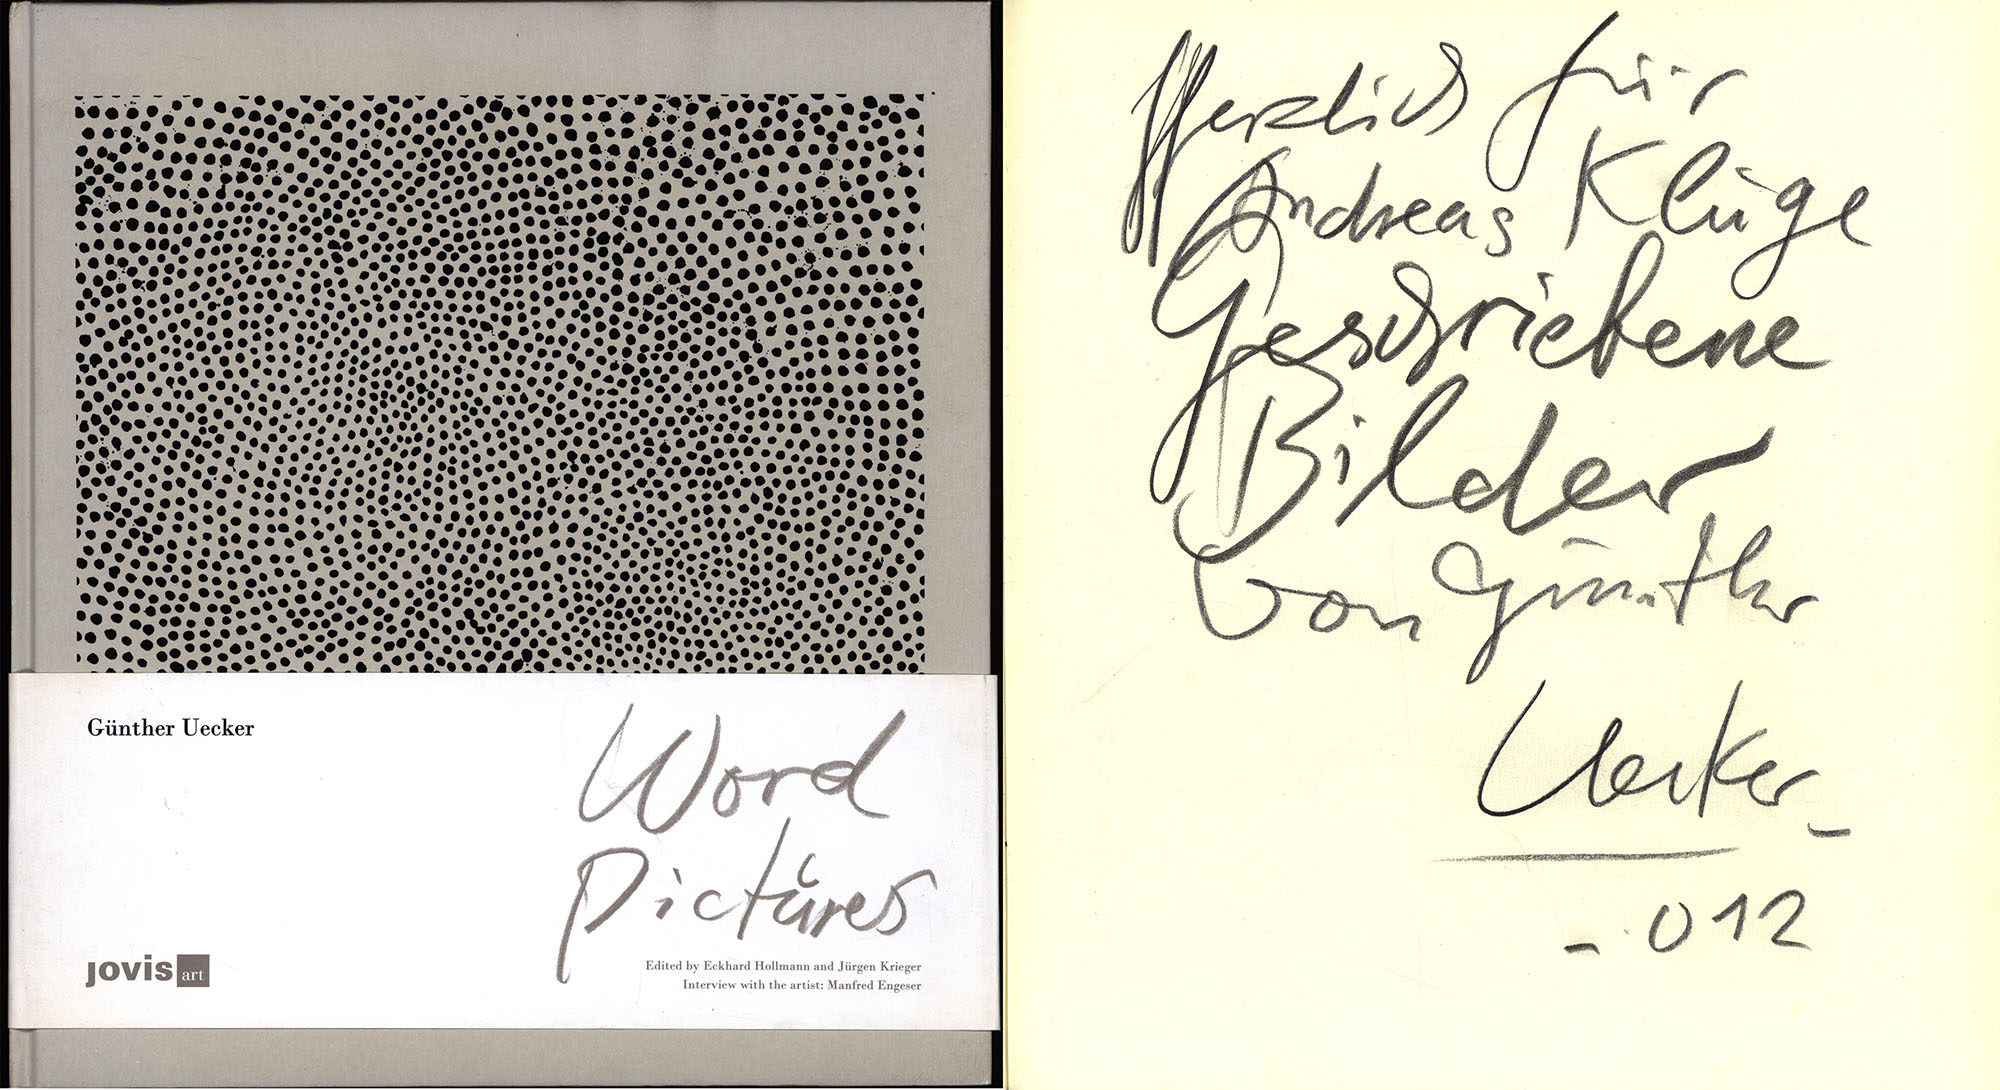 Günther Uecker
Word
Pictures
jovis art
Edited by Eckhard Hollmann and Jürgen Krieger
Interview with the artist: Manfred Engeser
Herzlich für
Andreas Kluge
Geschriebene
Bilder
von Günther
Uecker
-.012